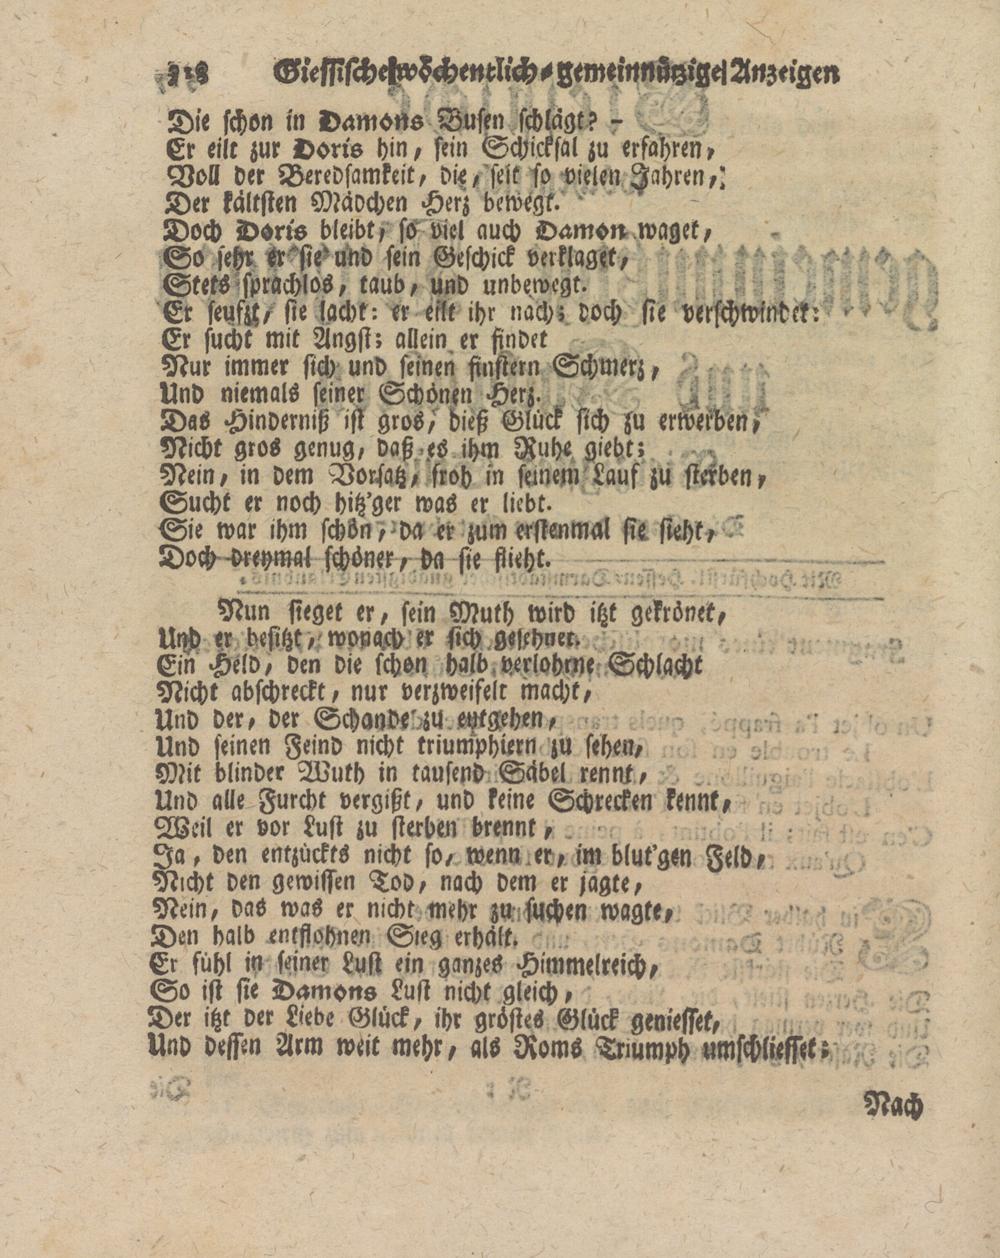 218 Giessische wöchentlich-gemeinnützige Anzeigen
Die schon in Damons Busen schlägt? –
Er eilt zur Doris hin, sein Schicksal zu erfahren,
Voll der Beredsamkeit, die, seit so vielen Jahren,
Der kältsten Mädchen Herz bewegt.
Doch Doris bleibt, so viel auch Damon waget,
So sehr er sie und sein Geschick verklaget,
Stets sprachlos, taub, und unbewegt.
Er seufzt, sie lacht: er eilt ihr nach; doch sie verschwindet:
Er sucht mit Angst; allein er findet
Nur immer sich und seinen finstern Schmerz,
Und niemals seiner Schönen Herz.
Das Hinderniß ist gros, dieß Glück sich zu erwerben,
Nicht gros genug, daß es ihm Ruhe giebt;
Nein, in dem Vorsatz, froh in seinem Lauf zu sterben,
Sucht er noch hitz'ger was er liebt.
Sie war ihm schön, da er zum erstenmal sie sieht,
Doch dreymal schöner, da sie flieht.
Nun sieget er, sein Muth wird itzt gekrönet,
Und er besitzt, wonach er sich gesehnet.
Ein Held, den die schon halb verlohrne Schlacht
Nicht abschreckt, nur verzweifelt macht,
Und der, der Schande zu entgehen,
Und seinen Feind nicht triumphiern zu sehen,
Mit blinder Wuth in tausend Säbel rennt,
Und alle Furcht vergißt, und keine Schrecken kennt,
Weil er vor Lust zu sterben brennt,
Ja, den entzückts nicht so, wenn er, im blut'gen Feld,
Nicht den gewissen Tod, nach dem er jagte,
Nein, das was er nicht mehr zu suchen wagte,
Den halb entflohnen Sieg erhält.
Er fühl in seiner Lust ein ganzes Himmelreich,
So ist sie Damons Lust nicht gleich,
Der itzt der Liebe Glück, ihr gröstes Glück geniesset,
Und dessen Arm weit mehr, als Roms Triumph umschliesset;
Nach